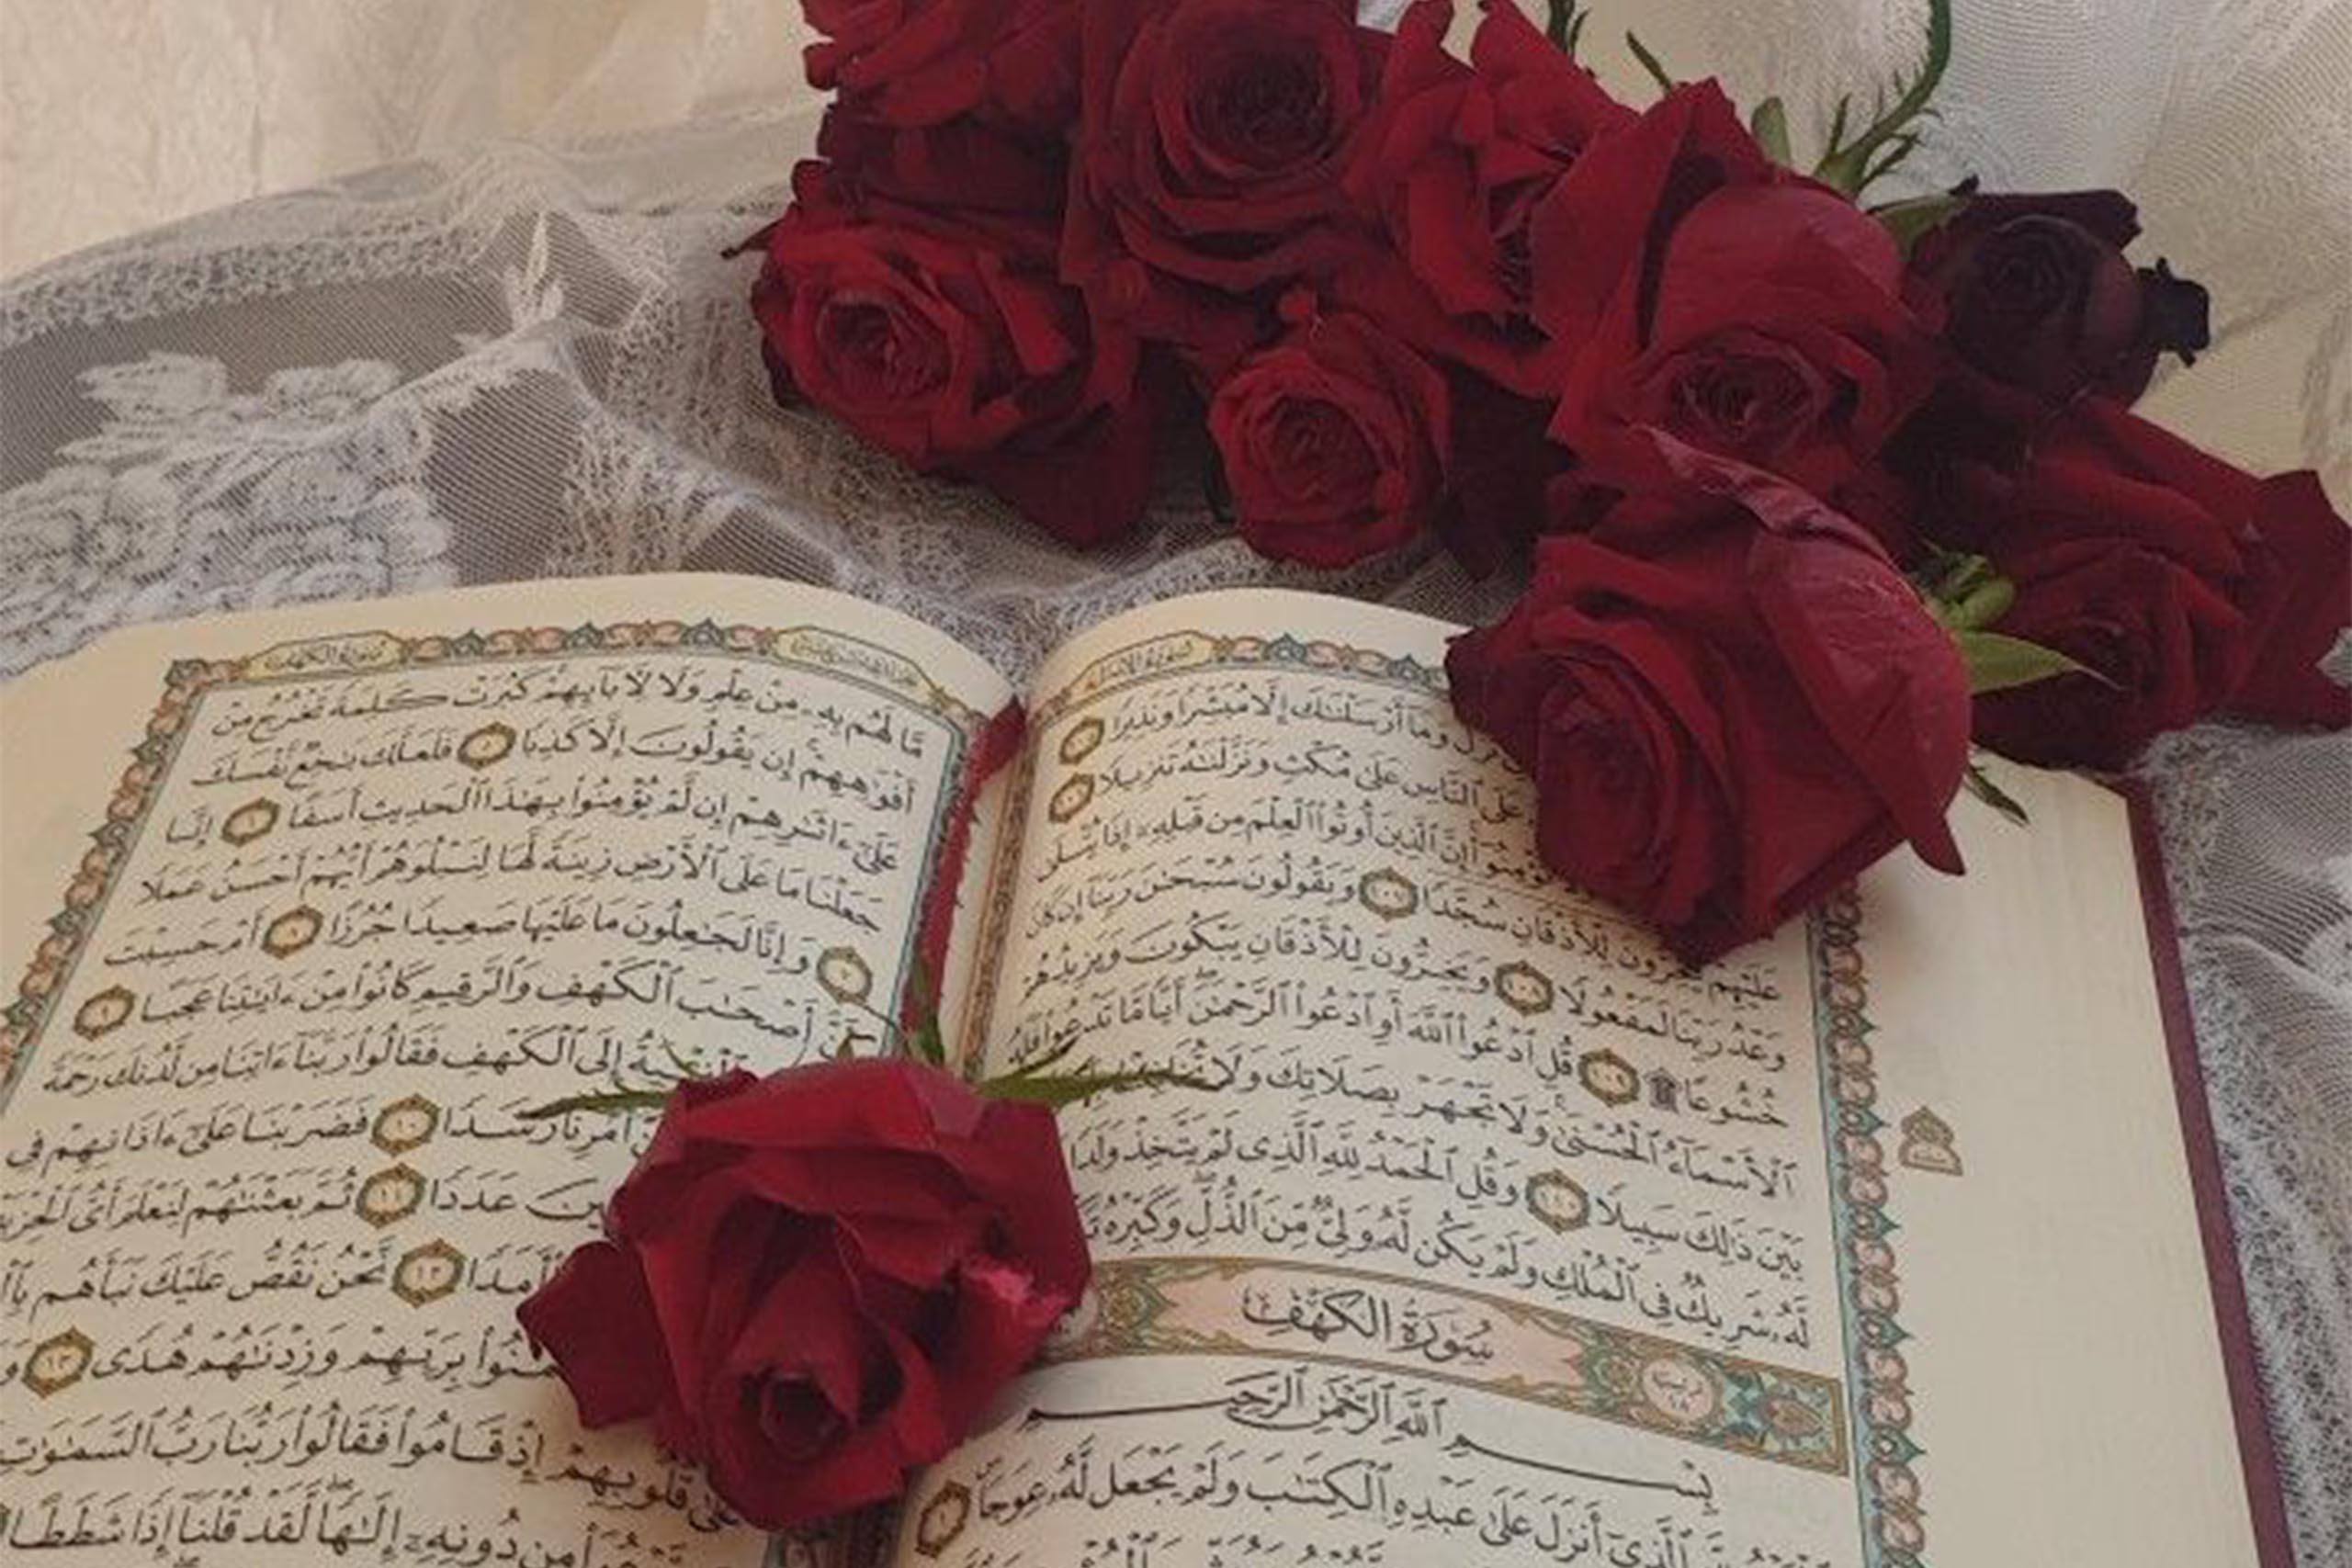 سورة الإسراء
نَزَلَ وَمَآ أَرْسَلْنَٰكَ إِلَّا مُبَشِّرًا وَنَذِيرًا ١٠٥
عَلَى ٱلنَّاسِ عَلَىٰ مُكْثٍ وَنَزَّلْنَٰهُ تَنزِيلًا ١٠٦
تُؤْمِنُوٓا۟ إِنَّ ٱلَّذِينَ أُوتُوا۟ ٱلْعِلْمَ مِن قَبْلِهِۦٓ إِذَا يُتْلَىٰ
عَلَيْهِمْ يَخِرُّونَ لِلْأَذْقَانِ سُجَّدًا ١٠٧ وَيَقُولُونَ سُبْحَٰنَ رَبِّنَآ إِن كَانَ
وَعْدُ رَبِّنَا لَمَفْعُولًا ١٠٨ وَيَخِرُّونَ لِلْأَذْقَانِ يَبْكُونَ وَيَزِيدُهُمْ
خُشُوعًا ۩ ١٠٩ قُلِ ٱدْعُوا۟ ٱللَّهَ أَوِ ٱدْعُوا۟ ٱلرَّحْمَٰنَ أَيًّا مَّا تَدْعُوا۟ فَلَهُ
ٱلْأَسْمَآءُ ٱلْحُسْنَىٰ وَلَا تَجْهَرْ بِصَلَاتِكَ وَلَا تُخَافِتْ
بَيْنَ ذَٰلِكَ سَبِيلًا ١١٠ وَقُلِ ٱلْحَمْدُ لِلَّهِ ٱلَّذِى لَمْ يَتَّخِذْ وَلَدًا
لَّهُۥ شَرِيكٌ فِى ٱلْمُلْكِ وَلَمْ يَكُن لَّهُۥ وَلِىٌّ مِّنَ ٱلذُّلِّ وَكَبِّرْهُ
سُورَةُ الكَهْفِ
بِسْمِ ٱللَّهِ ٱلرَّحْمَٰنِ ٱلرَّحِيمِ
ٱلَّذِىٓ أَنزَلَ عَلَىٰ عَبْدِهِ ٱلْكِتَٰبَ وَلَمْ يَجْعَل لَّهُۥ عِوَجَا ١
سورة الكهف
مَّا لَهُم بِهِۦ مِنْ عِلْمٍ وَلَا لِـَٔابَآئِهِمْ كَبُرَتْ كَلِمَةً تَخْرُجُ مِنْ
أَفْوَٰهِهِمْ إِن يَقُولُونَ إِلَّا كَذِبًا ٥ فَلَعَلَّكَ بَٰخِعٌ نَّفْسَكَ
عَلَىٰٓ ءَاثَٰرِهِمْ إِن لَّمْ يُؤْمِنُوا۟ بِهَٰذَا ٱلْحَدِيثِ أَسَفًا ٦ إِنَّا
جَعَلْنَا مَا عَلَى ٱلْأَرْضِ زِينَةً لَّهَا لِنَبْلُوَهُمْ أَيُّهُمْ أَحْسَنُ عَمَلًا
٧ وَإِنَّا لَجَٰعِلُونَ مَا عَلَيْهَا صَعِيدًا جُرُزًا ٨ أَمْ حَسِبْتَ
أَنَّ أَصْحَٰبَ ٱلْكَهْفِ وَٱلرَّقِيمِ كَانُوا۟ مِنْ ءَايَٰتِنَا عَجَبًا ٩
ٱلْفِتْيَةُ إِلَى ٱلْكَهْفِ فَقَالُوا۟ رَبَّنَآ ءَاتِنَا مِن لَّدُنكَ رَحْمَةً
أَمْرِنَا رَشَدًا ١٠ فَضَرَبْنَا عَلَىٰٓ ءَاذَانِهِمْ فِى
عَدَدًا ١١ ثُمَّ بَعَثْنَٰهُمْ لِنَعْلَمَ أَىُّ ٱلْحِزْبَيْنِ
أَمَدًا ١٢ نَّحْنُ نَقُصُّ عَلَيْكَ نَبَأَهُم
بِرَبِّهِمْ وَزِدْنَٰهُمْ هُدًى ١٣
عَلَىٰ قُلُوبِهِمْ إِذْ قَامُوا۟ فَقَالُوا۟ رَبُّنَا رَبُّ ٱلسَّمَٰوَٰتِ
مِن دُونِهِۦٓ إِلَٰهًا لَّقَدْ قُلْنَآ إِذًا شَطَطًا